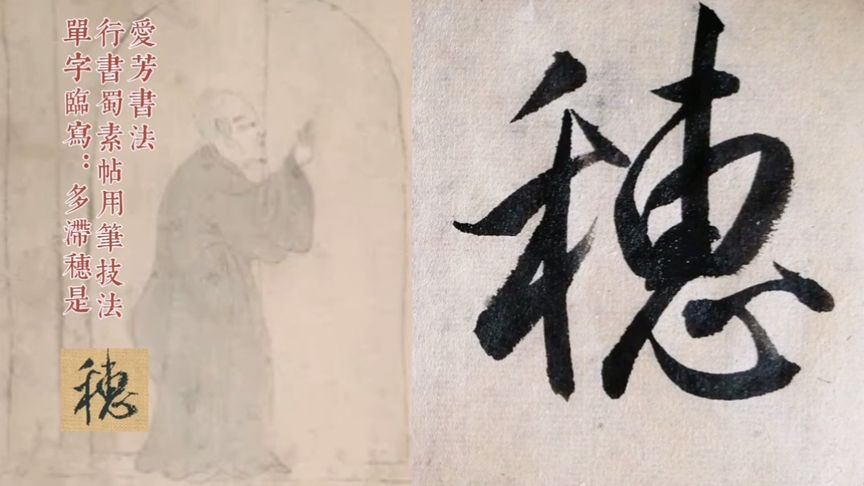 愛芳書法
行書蜀素帖用筆技法
單字臨寫：多滯穗是
穗
穗